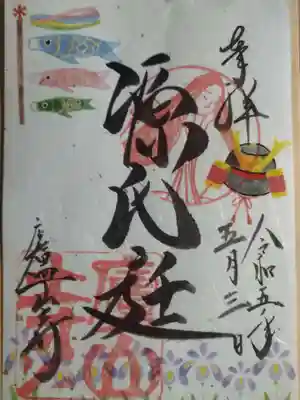 奉拝
令和五年
五月三日
源氏庭
廬山寺